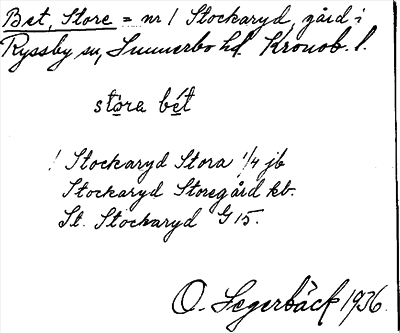 Bet, Store = nr 1 Stockaryd, gård i
Ryssby sn, Sunnerbo hd. Kronob. l.
stòra bét
! Stockaryd Stora 1/4 jb
Stockaryd Storegård kb.
St. Stockaryd G 15.
O. Segerbäck 1936